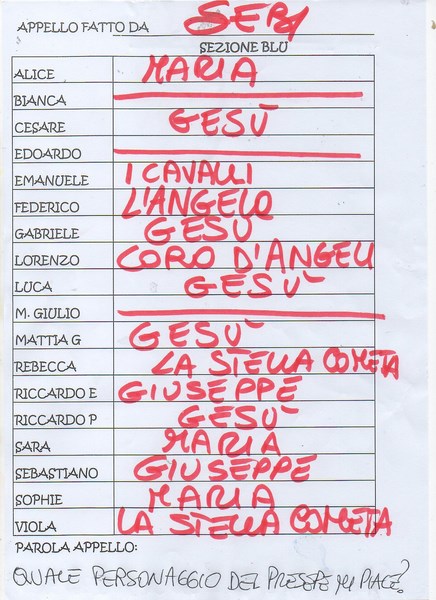 APPELLO FATTO DA SEBA
SEZIONE BLU
ALICE MARIA
BIANCA
CESARE GESÙ
EDOARDO
EMANUELE I CAVALLI
FEDERICO L'ANGELO
GABRIELE GESÙ
LORENZO CORO D'ANGELI
LUCA GESÙ
M. GIULIO
MATTIA G GESÙ
REBECCA LA STELLA COMETA
RICCARDO E GIUSEPPE
RICCARDO P GESÙ
SARA MARIA
SEBASTIANO GIUSEPPE
SOPHIE MARIA
VIOLA LA STELLA COMETA
PAROLA APPELLO:
QUALE PERSONAGGIO DEL PRESEPE MI PIACE?